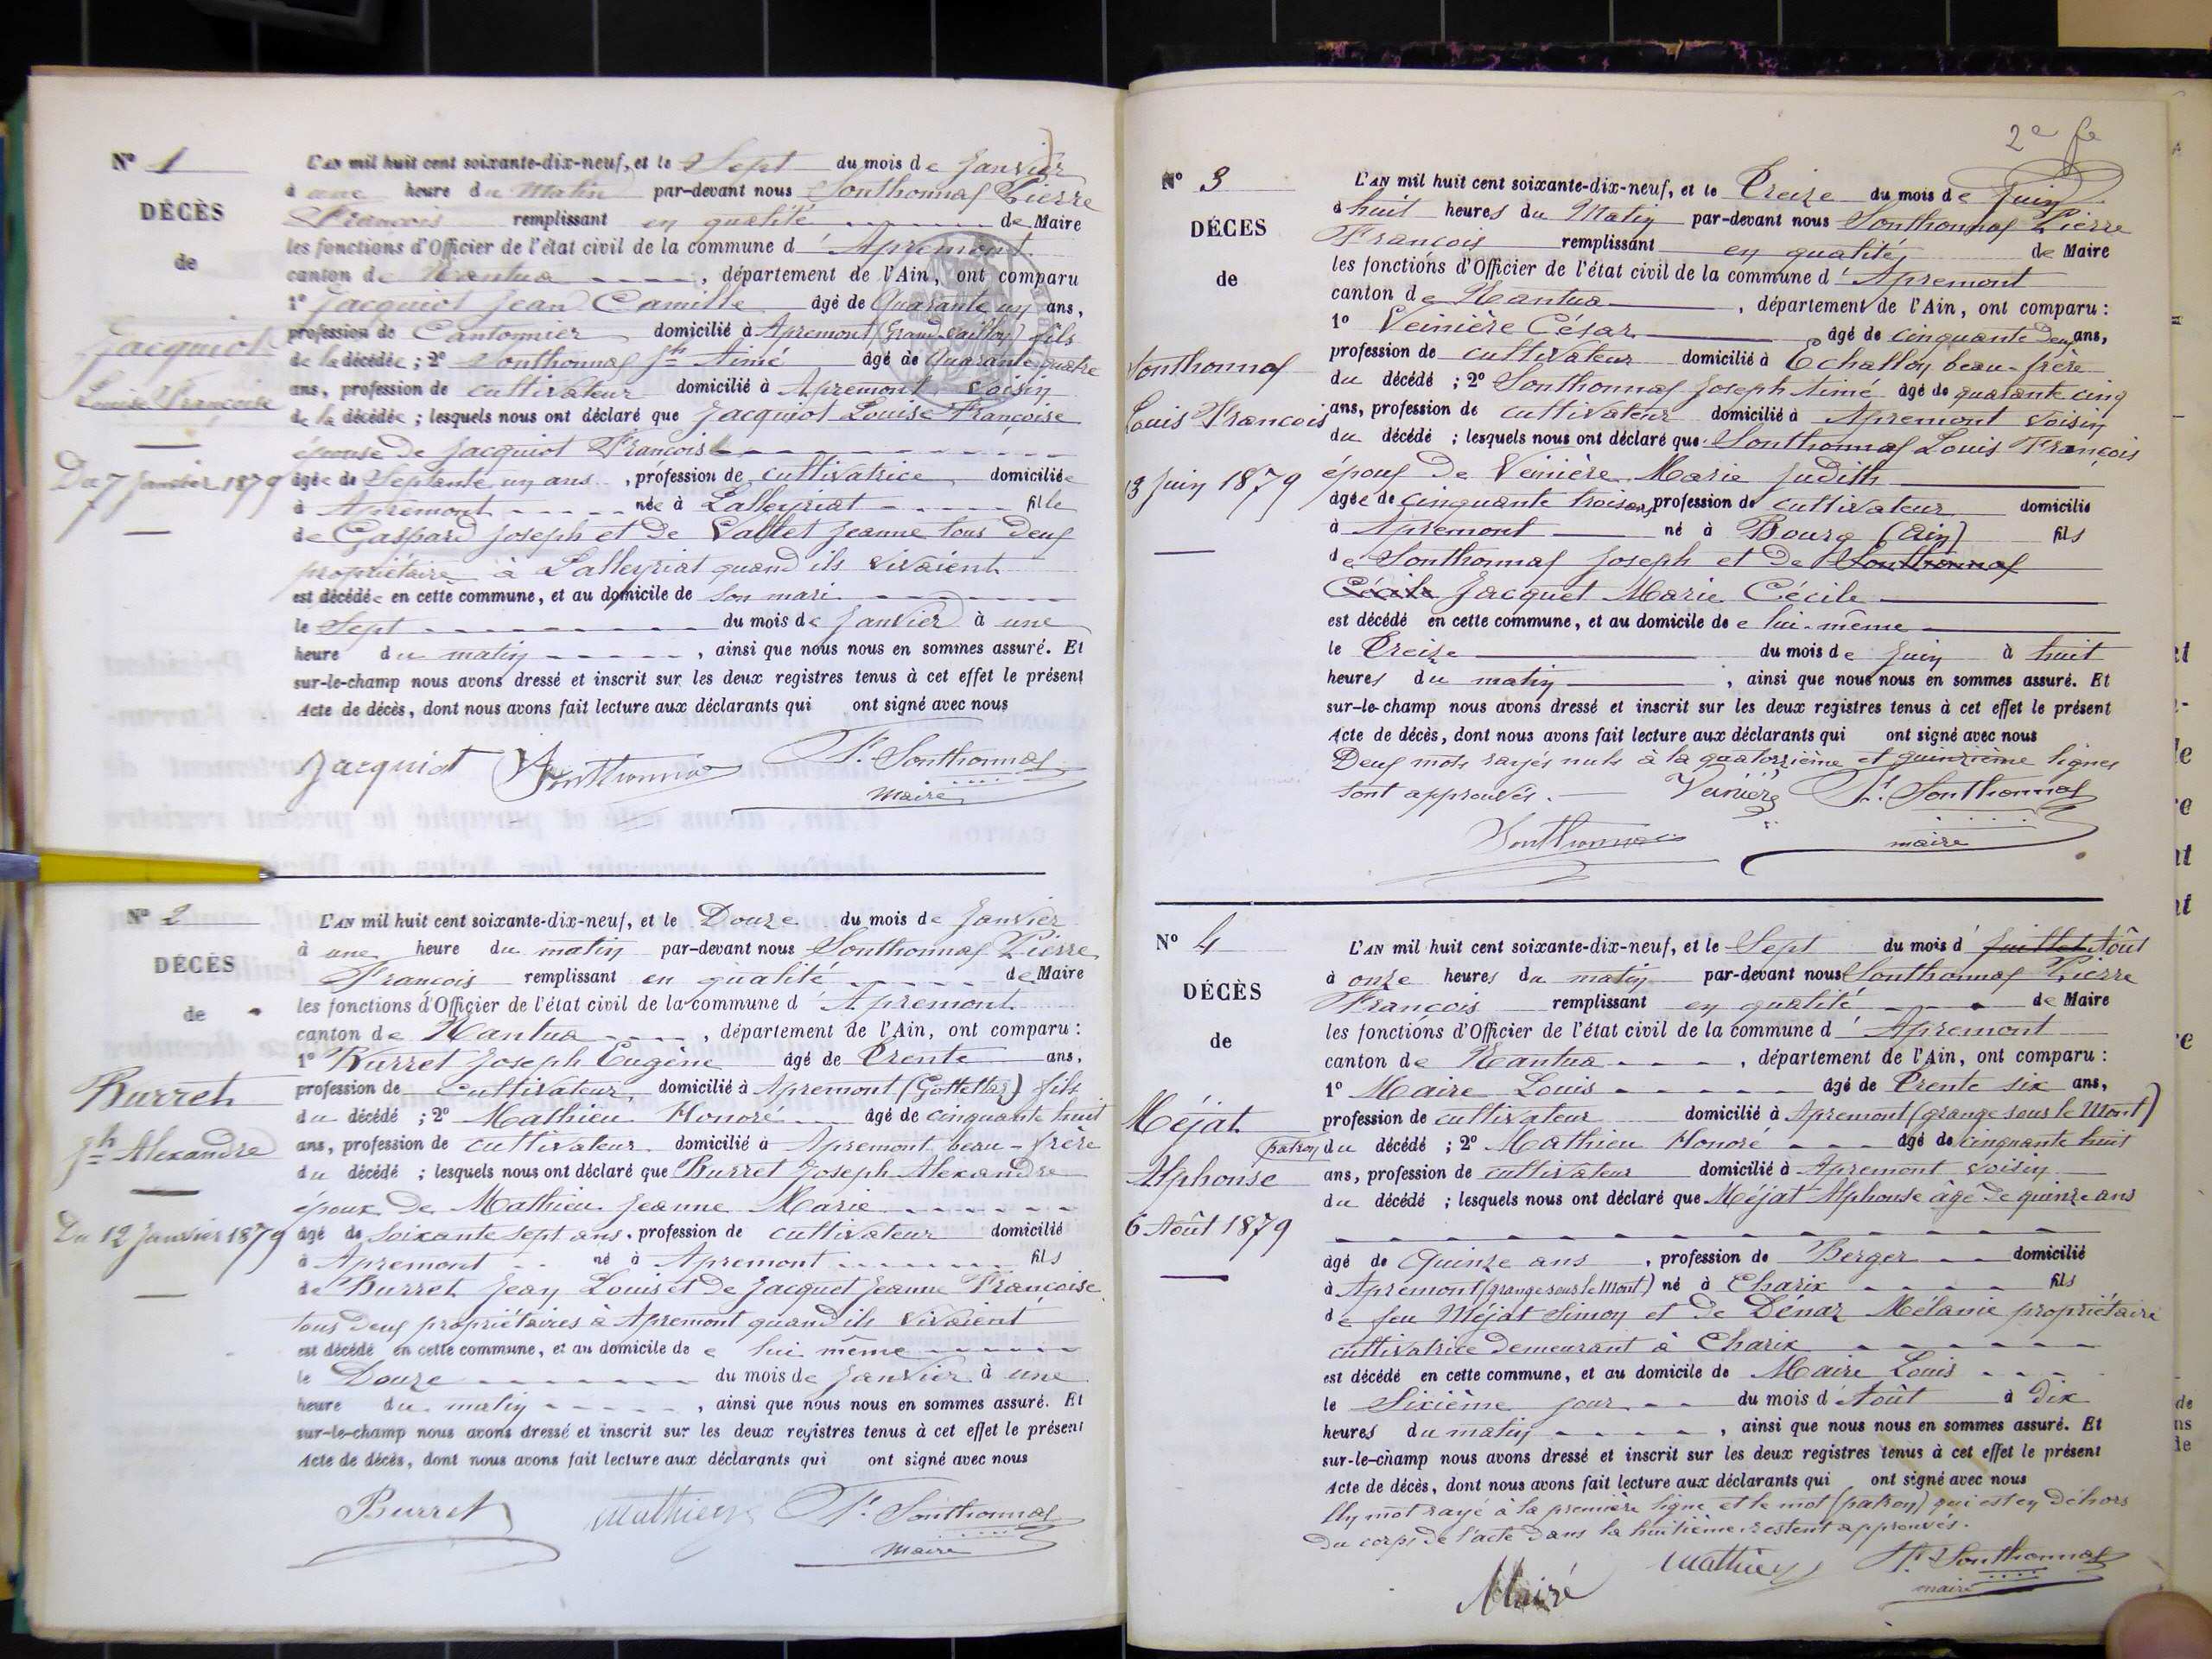 N° 1
DÉCÈS
de
Jacquiot
Louise Françoise
Du 7 Janvier 1879
L'AN mil huit cent soixante-dix-neuf, et le Sept du mois de Janvier
à une heure du Matin par-devant nous Sonthonnaf Pierre
François remplissant en qualité de Maire
les fonctions d'Officier de l'état civil de la commune d'Apremont
canton de Nantua, département de l'Ain, ont comparu
1° Jacquiot Jean Camille âgé de Quarante un ans,
profession de Cantonnier domicilié à Apremont (Grand Vaillon) fils
de la décédée ; 2° Sonthonnaf Jh Aimé âgé de Quarante quatre
ans, profession de cultivateur domicilié à Apremont voisin
de la décédée ; lesquels nous ont déclaré que Jacquiot Louise Françoise
épouse de Jacquiot François
âgée de Septante un ans, profession de cultivatrice domiciliée
à Apremont née à Lalleyriat fille
de Gaspard Joseph et de Vallet Jeanne tous deux
propriétaire à Lalleyriat quand ils vivaient
est décédée en cette commune, et au domicile de son mari
le Sept du mois de Janvier à une
heure du matin, ainsi que nous nous en sommes assuré. Et
sur-le-champ nous avons dressé et inscrit sur les deux registres tenus à cet effet le présent
Acte de décès, dont nous avons fait lecture aux déclarants qui ont signé avec nous
Jacquiot Sonthonnax P. Sonthonnaf
maire
N° 2
DÉCÈS
de
Burret
Jh Alexandre
Du 12 Janvier 1879
L'AN mil huit cent soixante-dix-neuf, et le Douze du mois de Janvier
à une heure du matin par-devant nous Sonthonnaf Pierre
François remplissant en qualité de Maire
les fonctions d'Officier de l'état civil de la commune d'Apremont
canton de Nantua, département de l'Ain, ont comparu :
1° Burret Joseph Eugène âgé de Trente ans,
profession de Cultivateur domicilié à Apremont (Gottettaz) fils
du décédé ; 2° Mathieu Honoré âgé de cinquante huit
ans, profession de cultivateur domicilié à Apremont beau-frère
du décédé ; lesquels nous ont déclaré que Burret Joseph Alexandre
époux de Mathieu Jeanne Marie
âgé de Soixante sept ans, profession de cultivateur domicilié
à Apremont né à Apremont fils
de Burret Jean Louis et de Jacquet Jeanne Françoise
tous deux propriétaires à Apremont quand ils vivaient
est décédé en cette commune, et au domicile de e lui même
le Douze du mois de Janvier à une
heure du matin, ainsi que nous nous en sommes assuré. Et
sur-le-champ nous avons dressé et inscrit sur les deux registres tenus à cet effet le présent
Acte de décès, dont nous avons fait lecture aux déclarants qui ont signé avec nous
Burret Mathieu P. Sonthonnaf
maire
2e fe
N° 3
DÉCES
de
Sonthonnaf
Louis François
13 Juin 1879
L'AN mil huit cent soixante-dix-neuf, et le Treize du mois de Juin
à huit heures du Matin par-devant nous Sonthonnaf Pierre
François remplissant en qualité de Maire
les fonctions d'Officier de l'état civil de la commune d'Apremont
canton de Nantua, département de l'Ain, ont comparu :
1° Veinière César âgé de cinquante deux ans,
profession de cultivateur domicilié à Echallon beau-frère
du décédé ; 2° Sonthonnaf Joseph Aimé âgé de quarante cinq
ans, profession de cultivateur domicilié à Apremont voisin
du décédé ; lesquels nous ont déclaré que Sonthonnaf Louis François
époux de Veinière Marie Judith
âgée de cinquante trois ans, profession de cultivateur domicilié
à Apremont né à Bourg (Ain) fils
de Sonthonnaf Joseph et de Sonthonnaf
Cécile Jacquet Marie Cécile
est décédé en cette commune, et au domicile de e lui-même
le Treize du mois de Juin à huit
heures du matin, ainsi que nous nous en sommes assuré. Et
sur-le-champ nous avons dressé et inscrit sur les deux registres tenus à cet effet le présent
Acte de décès, dont nous avons fait lecture aux déclarants qui ont signé avec nous
Deux mots rayés nuls à la quatorzième et quinzième lignes
sont approuvés. Veinière P. Sonthonnaf
Sonthonnax maire
N° 4
DÉCÈS
de
Méjat
Alphonse
6 Août 1879
L'AN mil huit cent soixante-dix-neuf, et le Sept du mois d' Juillet Août
à onze heures du matin par-devant nous Sonthonnaf Pierre
François remplissant en qualité de Maire
les fonctions d'Officier de l'état civil de la commune d'Apremont
canton de Nantua, département de l'Ain, ont comparu :
1° Maire Louis âgé de Trente six ans,
profession de cultivateur domicilié à Apremont (grange sous le Mont)
(patron) du décédé ; 2° Mathieu Honoré âgé de cinquante huit
ans, profession de cultivateur domicilié à Apremont voisin
du décédé ; lesquels nous ont déclaré que Méjat Alphonse âgé de quinze ans
âgé de Quinze ans, profession de Berger domicilié
à Apremont (grange sous le Mont) né à Charix fils
de feu Méjat Simon et de Dénaz Mélanie propriétaire
cultivatrice demeurant à Charix
est décédé en cette commune, et au domicile de Maire Louis
le Sixième jour du mois d'Août à dix
heures du matin, ainsi que nous nous en sommes assuré. Et
sur-le-champ nous avons dressé et inscrit sur les deux registres tenus à cet effet le présent
Acte de décès, dont nous avons fait lecture aux déclarants qui ont signé avec nous
Un mot rayé à la première ligne et le mot (patron) qui est en déhors
du corps de l'acte dans la huitième restent approuvés.
Mairé Mathieu P. Sonthonnaf
maire